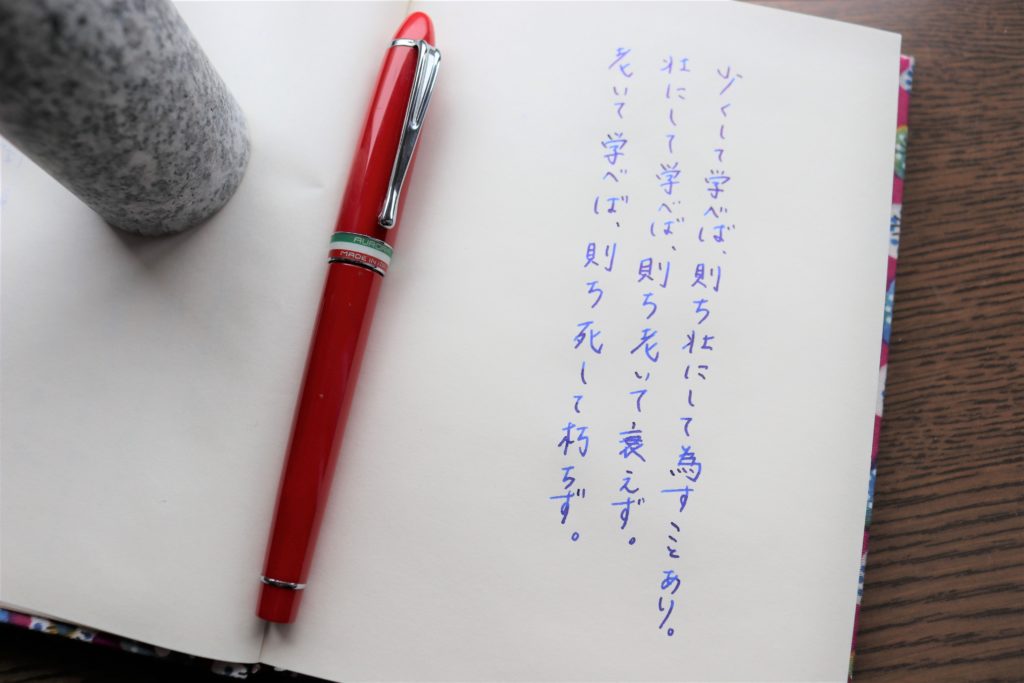 少くして学べば、則ち壮にして為すことあり。
壮にして学べば、則ち老いて衰えず。
老いて学べば、則ち死して朽ちず。
MADE IN